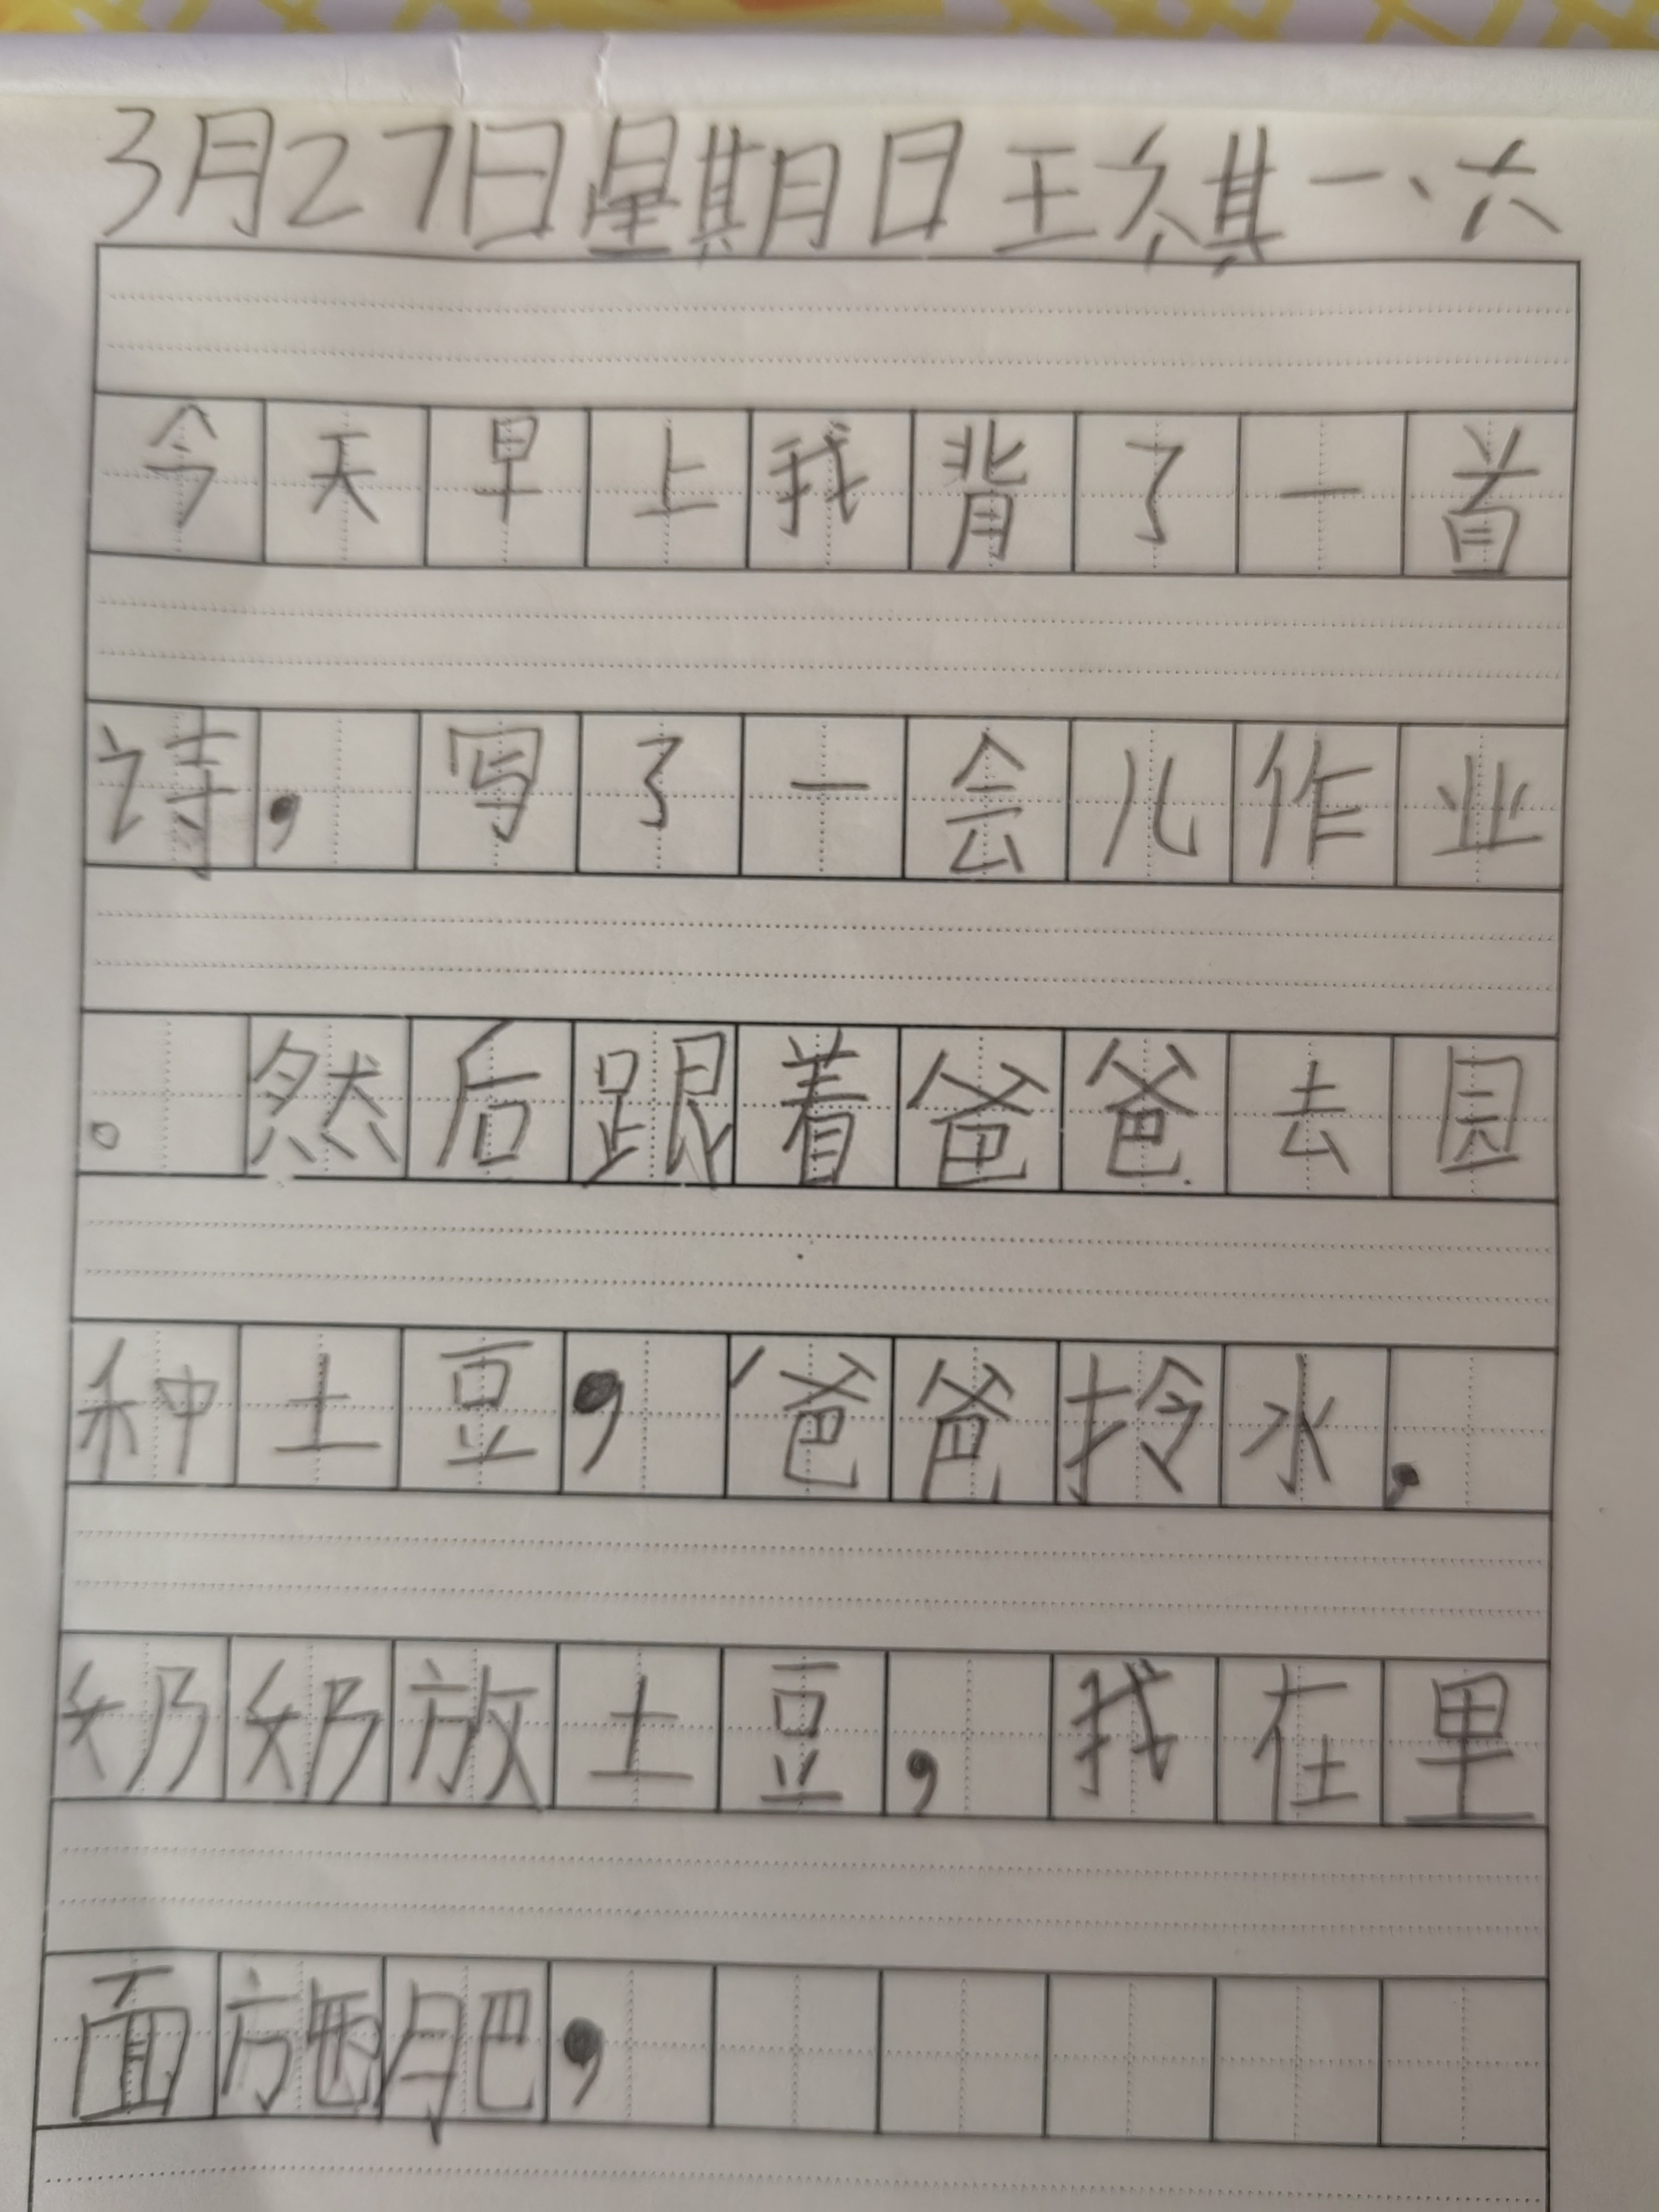 3月27日星期日王祺一、六
今天早上我背了一首
诗,写了一会儿作业
。然后跟着爸爸去园
种土豆,爸爸拎水,
奶奶放土豆,我在里
面施肥,